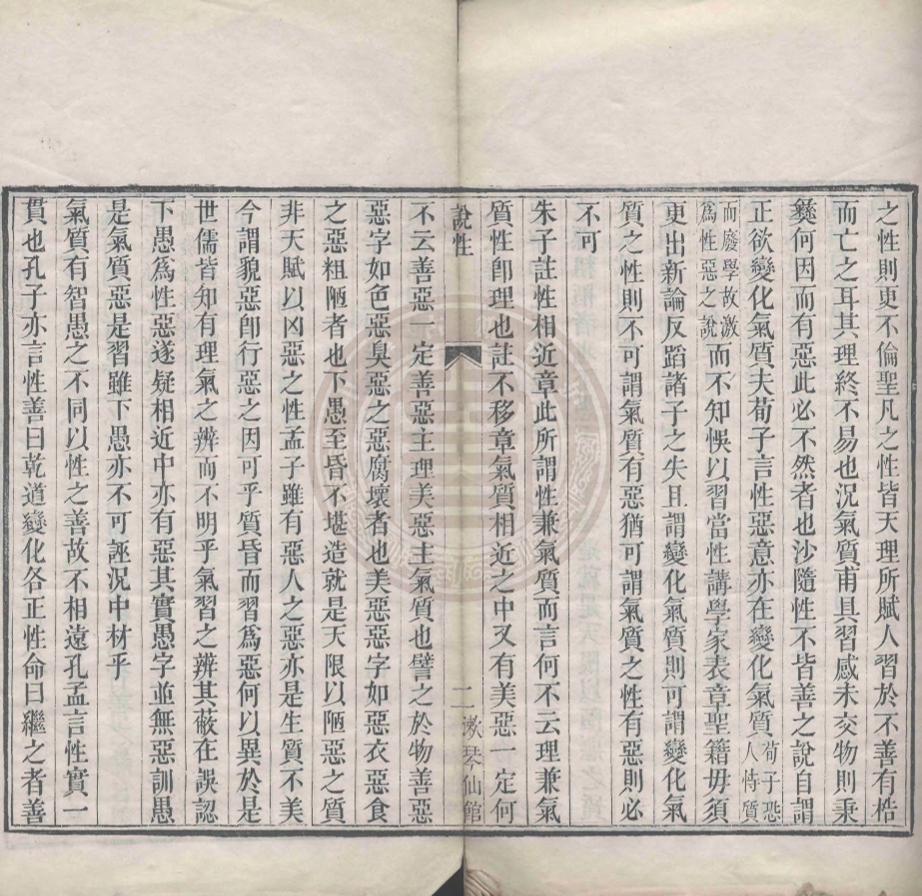 之性則更不倫聖凡之性皆天理所賦人習於不善有梏
而亡之耳其理終不易也況氣質甫具習感未交物則秉
彝何因而有惡此必不然者也沙隨性不皆善之說自謂
正欲變化氣質夫荀子言性惡意亦在變化氣質荀子恐人恃質
而廢學故激為性惡之說而不知悞以習當性講學家表章聖籍毋須
更出新論反蹈諸子之失且謂變化氣質則可謂變化氣
質之性則不可謂氣質有惡猶可謂氣質之性有惡則必
不可
朱子註性相近章此所謂性兼氣質而言何不云理兼氣
質性卽理也註不移章氣質相近之中又有美惡一定何
說性
二
漱琴仙館
不云善惡一定善惡主理美惡主氣質也譬之於物善惡
惡字如色惡臭惡之惡腐壞者也美惡惡字如惡衣惡食
之惡粗陋者也下愚至昏不堪造就是天限以陋惡之質
非天賦以凶惡之性孟子雖有惡人之惡亦是生質不美
今謂貌惡卽行惡之因可乎質昏而習爲惡何以異於是
世儒皆知有理氣之辨而不明乎氣習之辨其蔽在誤認
下愚爲性惡遂疑相近中亦有惡其實愚字並無惡訓愚
是氣質惡是習雖下愚亦不可誣況中材乎
氣質有智愚之不同以性之善故不相遠孔孟言性實一
貫也孔子亦言性善曰乾道變化各正性命曰繼之者善